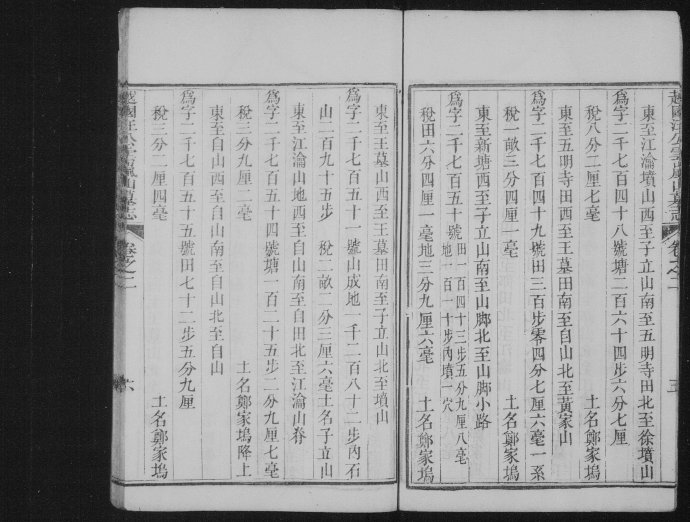 東至江瀹墳山西至子立山南至五明寺田北至徐墳山
為字二千七百四十八號塘二百六十四步六分七厘
稅八分二厘七毫 土名鄭家塢
東至五明寺田西至王墓田南至自山北至黃家山
為字二千七百四十九號田三百步零四分七厘六毫一系
稅一畝三分四厘一毫 土名鄭家塢
東至新塘西至子立山南至山脚北至山脚小路
為字二千七百五十號田一百四十三步五分九厘八毫
地一百一十步內墳一穴
稅田六分四厘一毫地三分九厘六毫 土名鄭家塢
越國汪公雲嵐山墓志 卷之二 五
東至王墓山西至王墓田南至子立山北至墳山
為字二千七百五十一號山成地一千二百八十二步內石
山二百九十五步 稅二畝二分三厘六毫土名子立山
東至江瀹山地西至自山南至自田北至江瀹山脊
為字二千七百五十四號塘一百二十五步二分九厘七毫
稅三分九厘二毫 土名鄭家塢降上
東至自山西至自山南至自山北至自山
為字二千七百五十五號田七十二步五分九厘
稅三分二厘四毫 土名鄭家塢
越國汪公雲嵐山墓志 卷之二 六